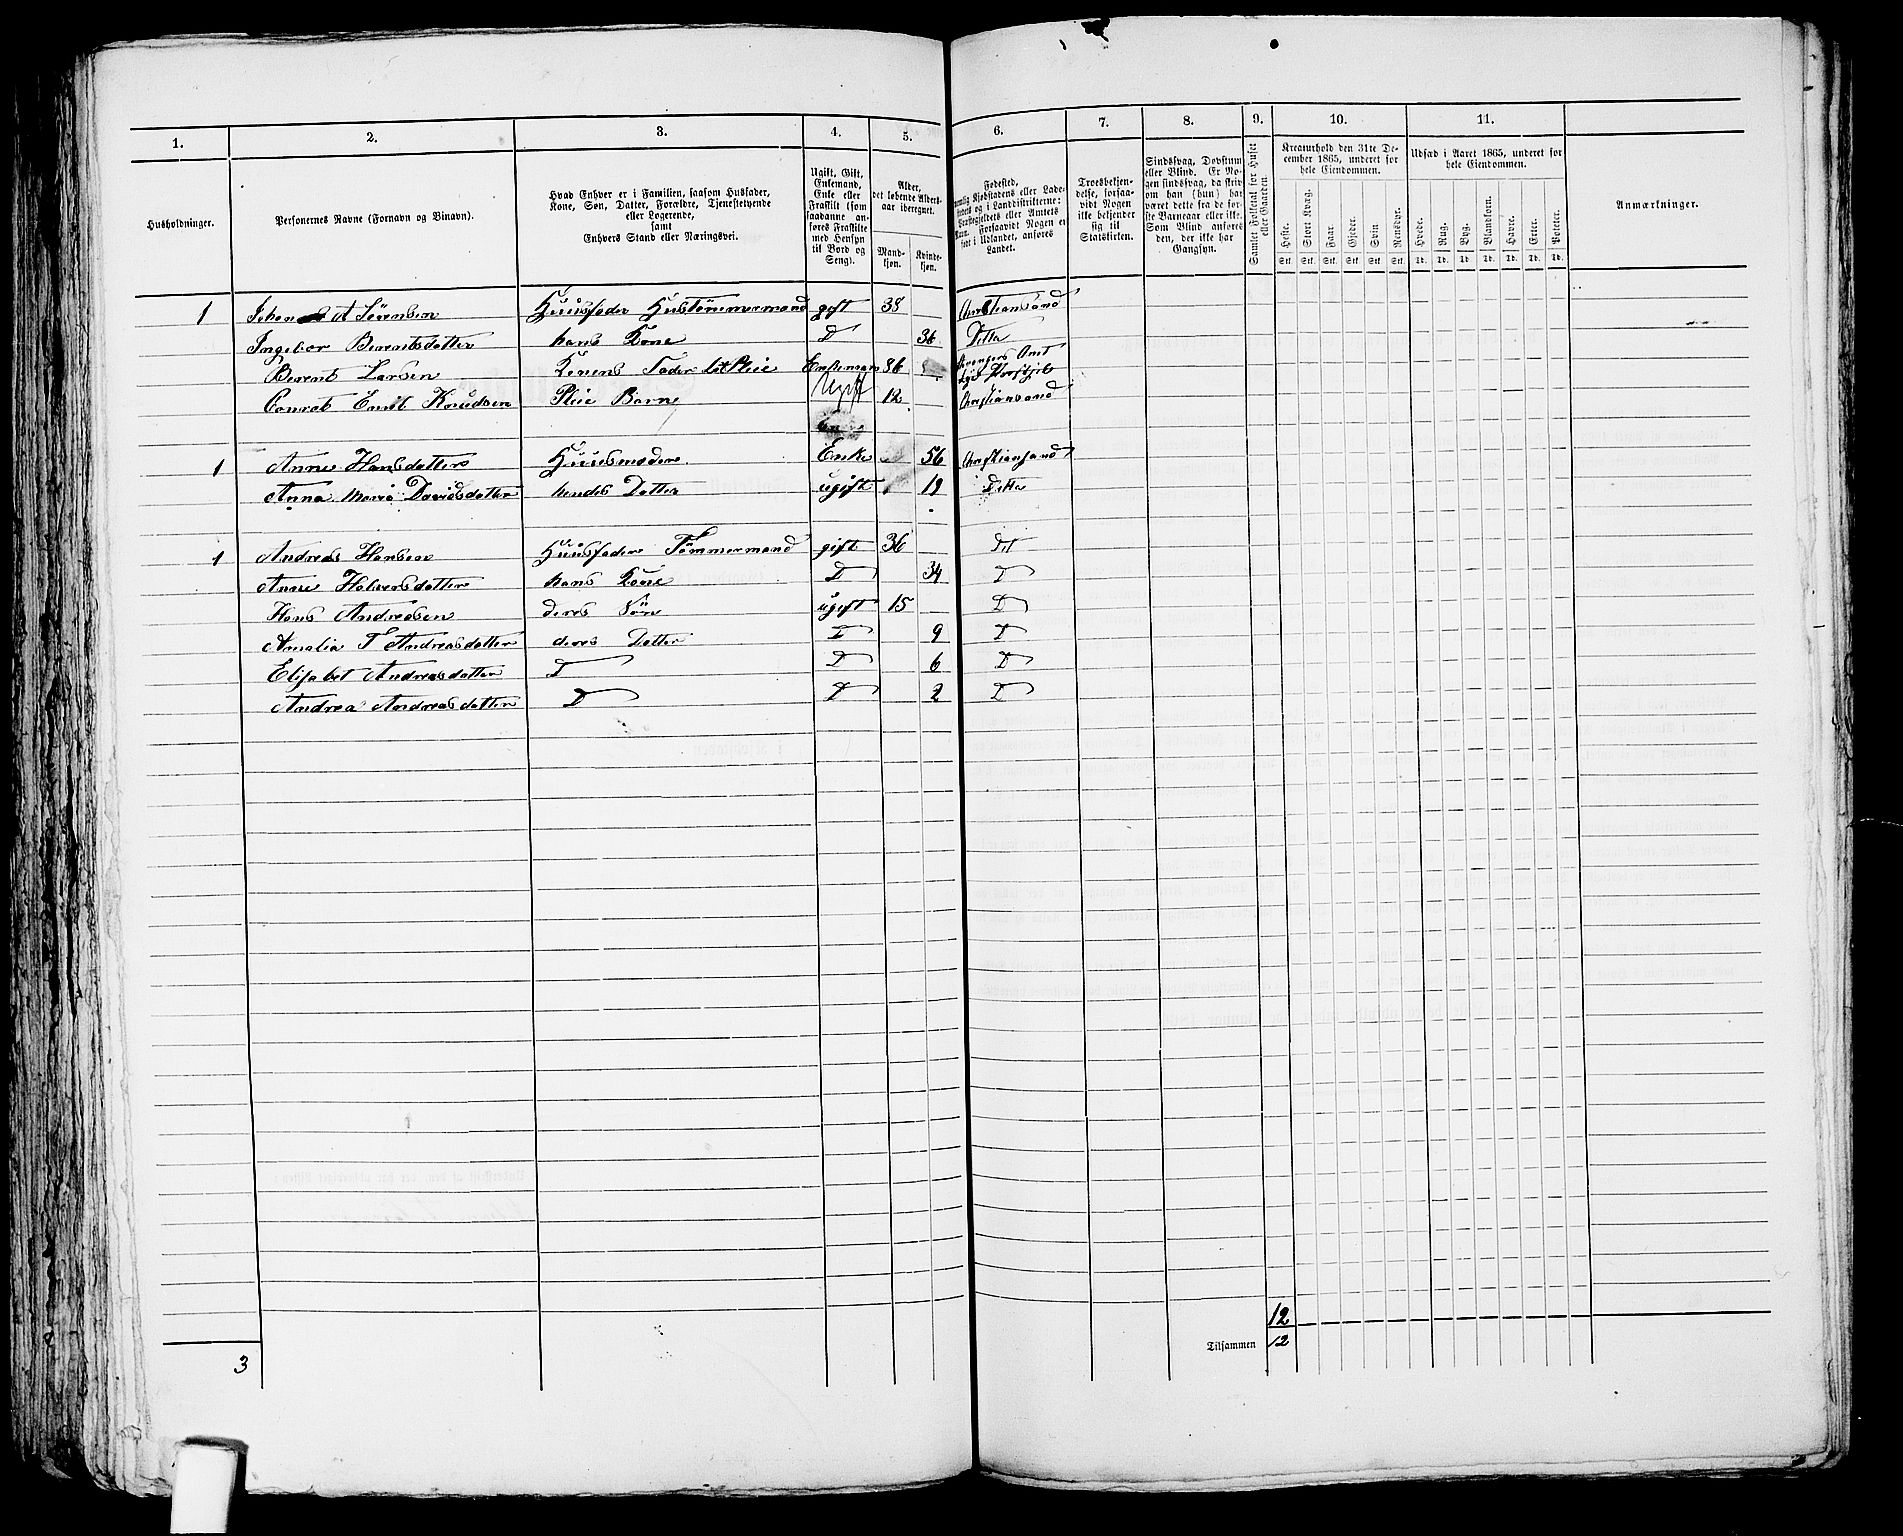 1. 2. 3. 4. 5. 6. 7. 8. 9. 10. 11.
Husholdninger.
Personernes Navne (Fornavn og Binavn).
Hvad Enhver er i Familien, saasom Husfader,
Kone, Søn, Datter, Forældre, Tjenestetyende
eller Logerende,
samt
Enhvers Stand eller Næringsvei.
Ugift, Gift,
Enkemand,
Enke eller
Fraskilt (som
saadanne an-
føres Fraskilte
med Hensyn
til Bord og
Seng).
Alder,
det løbende Alders-
aar iberegnet.
Mand-
kjøn.
Kvinde-
kjøn.
Fødested,
nemlig Kjøbstadens eller Lade-
stedets og i Landdistrikterne:
Præstegjeldets eller Amtets
Navn. Forsaavidt Nogen er
født i Udlandet, anføres
Landet.
Troesbekjen-
delse, forsaa-
vidt Nogen
ikke bekjender
sig til
Statskirken.
Sindssvag, Døvstum
eller Blind. Er No-
gen sindssvag, da skriv
om han (hun) har
været dette fra de før-
ste Barneaar eller ikke.
Som Blind anføres
den, der ikke har
Gangsyn.
Samlet Folketal for Huset
eller Gaarden.
Kreaturhold den 31te De-
cember 1865, underet for
hele Eiendommen.
Heste. Stort Kvæg. Faar. Gjeder. Svin Rensdyr.
Stk. Stk. Stk. Stk. Stk. Stk.
Udsæd i Aaret 1865, underet for
hele Eiendommen.
Hvede. Rug. Byg. Blandkorn. Havre. Erter. Poteter.
Td. Td. Td. Td. Td. Td. Td.
Anmærkninger.
1 A Sørensen Huusfader Hustømmermand gift 38 Christiansand
Ingebor Berentsdatter hans Kone D 36 Ditta
Berent Larsen Konens Fader Enkeman 86 Amt
Conrat Emil Knudsen Pleie Barne Ugift 12 Christiansand
1 Anne Hansdatter Huusmoder Enke 56 Christiansand
Anna Maria Davidsdatter hendes Datter ugift 19 Ditta
1 Andreas Hansen Huusfader Tømmermand gift 36 Dit
Anne Halvorsdatter hans Kone D 34 D
Hans Andreasen deres Søn ugift 15 D
Amalia T Andreasdatter deres Datter D 9 D
Elisabet Andreasdatter D D 6 D
Andrea Andreasdatter D D 2 D
12
Tilsammen 12
3